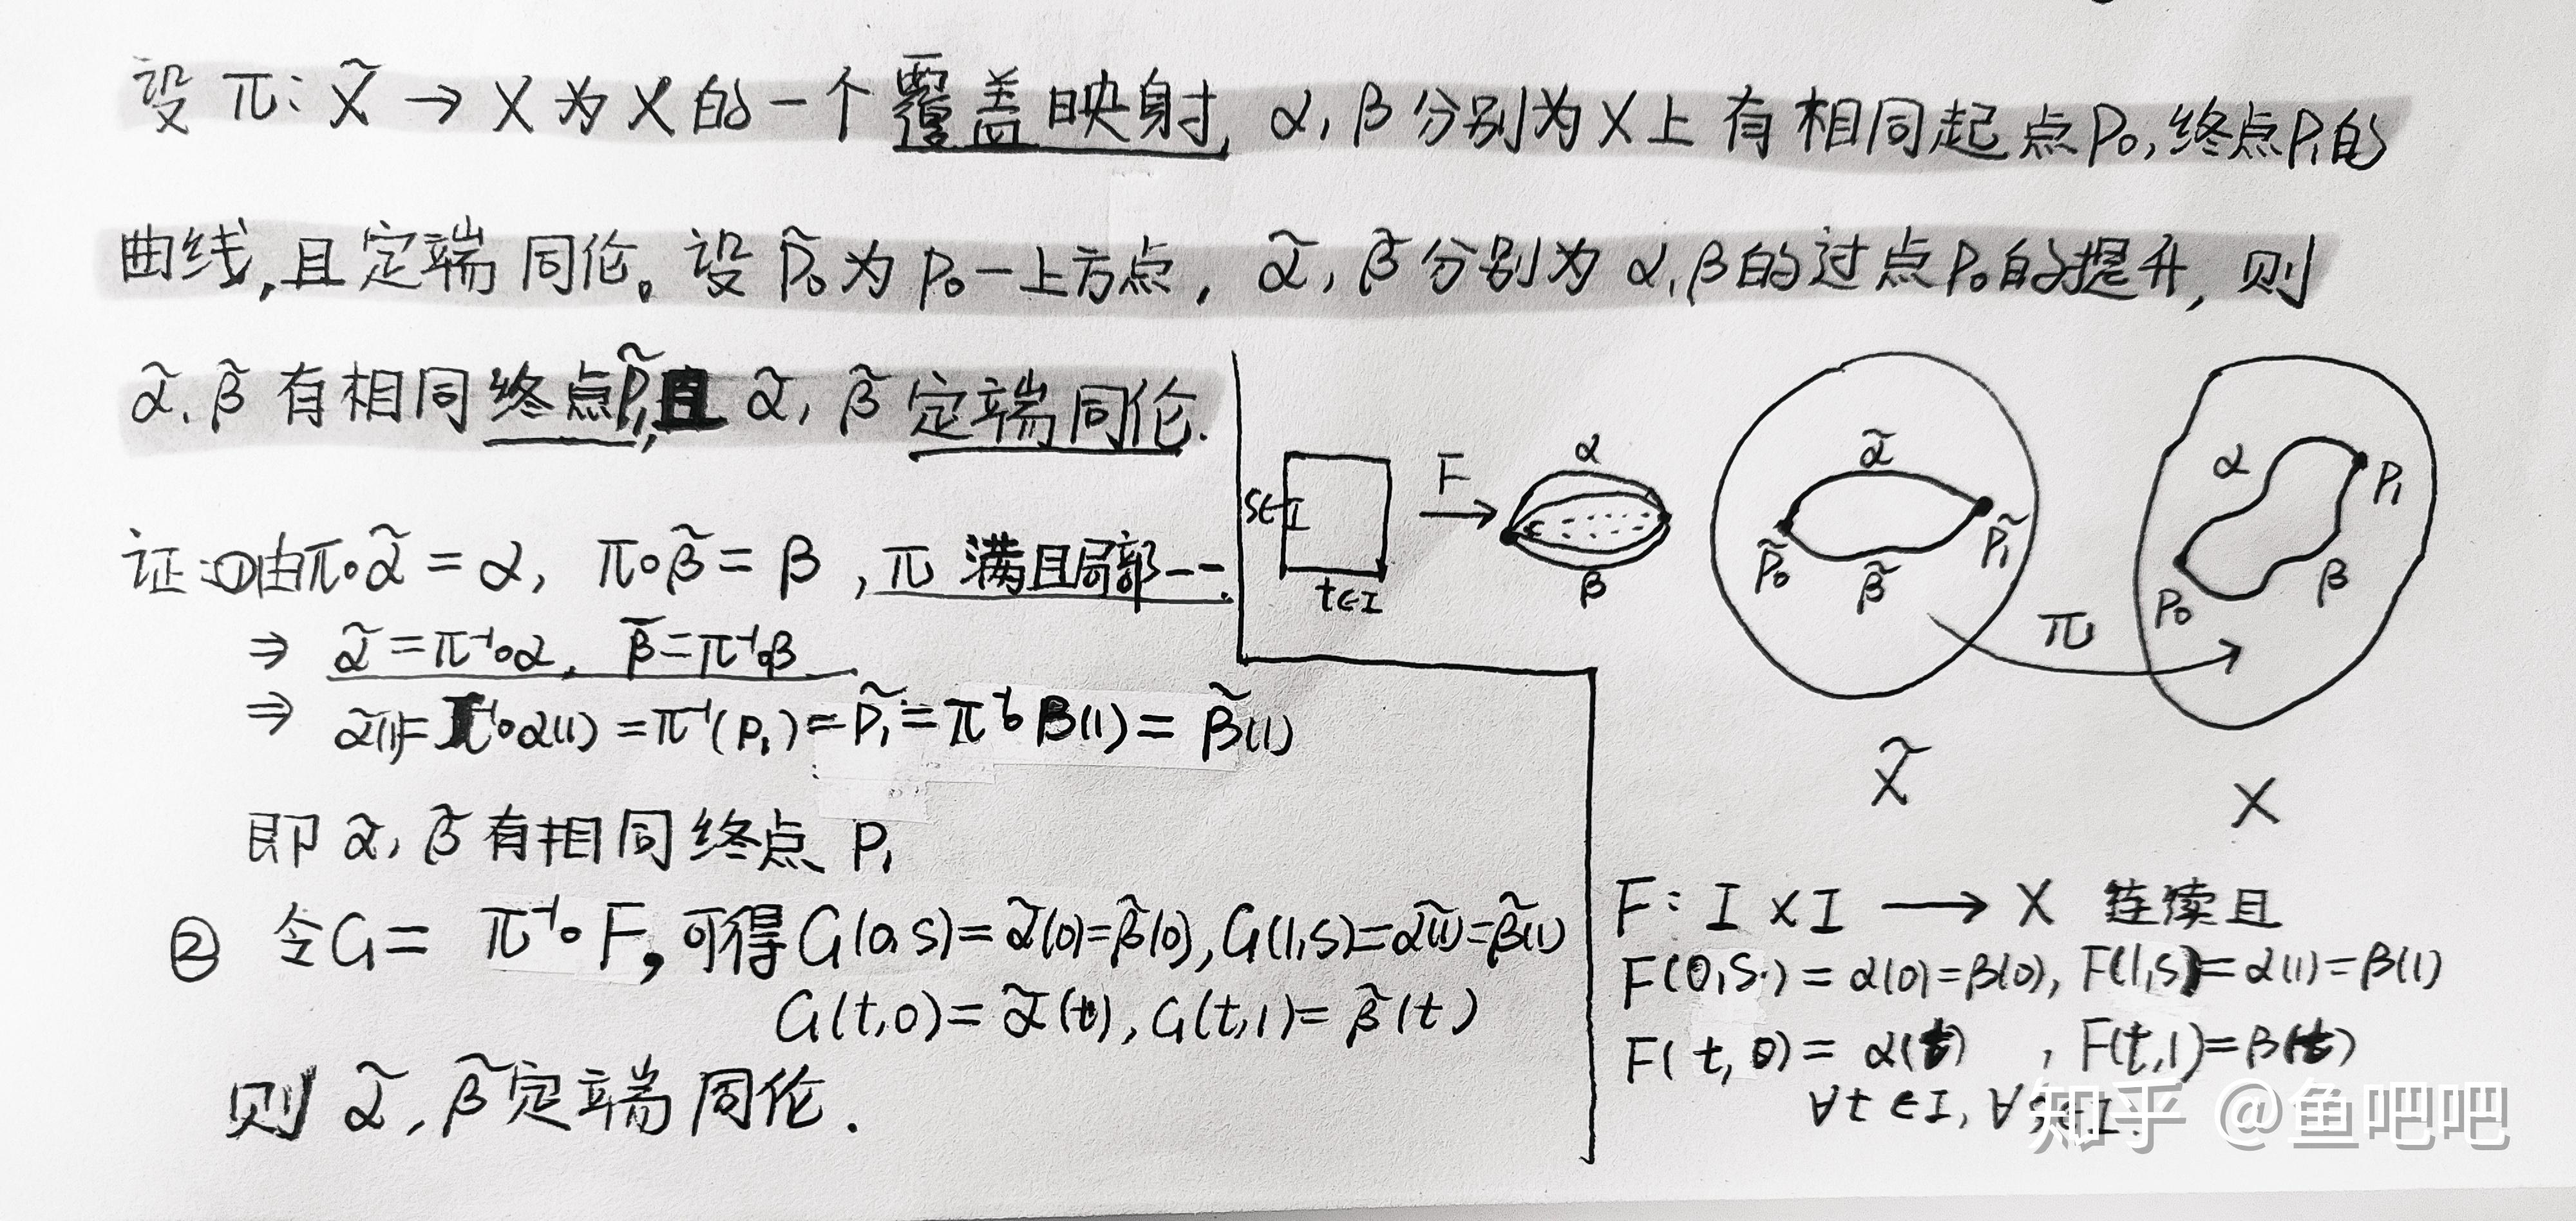 设 π: X̃ → X 为 X 的一个覆盖映射, α, β 分别为 X 上有相同起点 P₀, 终点 P₁ 的
曲线, 且定端同伦。设 P̃₀ 为 P₀ 一上方点, α̃, β̃ 分别为 α, β 的过点 P₀ 的提升, 则
α̃, β̃ 有相同终点 P̃₁, 且 α̃, β̃ 定端同伦.
证: ①由 π∘α̃ = α, π∘β̃ = β, π 满且局部一一.
⇒ α̃ = π⁻¹∘α, β̄ = π⁻¹∘β
⇒ α̃(1) = π⁻¹∘α(1) = π⁻¹(P₁) = P̃₁ = π⁻¹∘β(1) = β̃(1)
即 α̃, β̃ 有相同终点 P₁
② 令 G = π⁻¹∘F, 可得 G(0,S) = α̃(0) = β̃(0), G(1,S) = α̃(1) = β̃(1)
G(t,0) = α̃(t), G(t,1) = β̃(t)
则 α̃, β̃ 定端同伦.
S∈I
t∈I
F
α
β
α̃
P̃₀
P̃₁
β̃
π
α
P₁
P₀
β
X̃
X
F: I × I → X 连续且
F(0,S) = α(0) = β(0), F(1,S) = α(1) = β(1)
F(t,0) = α(t), F(t,1) = β(t)
∀t∈I, ∀S∈I.
知乎 @鱼吧吧